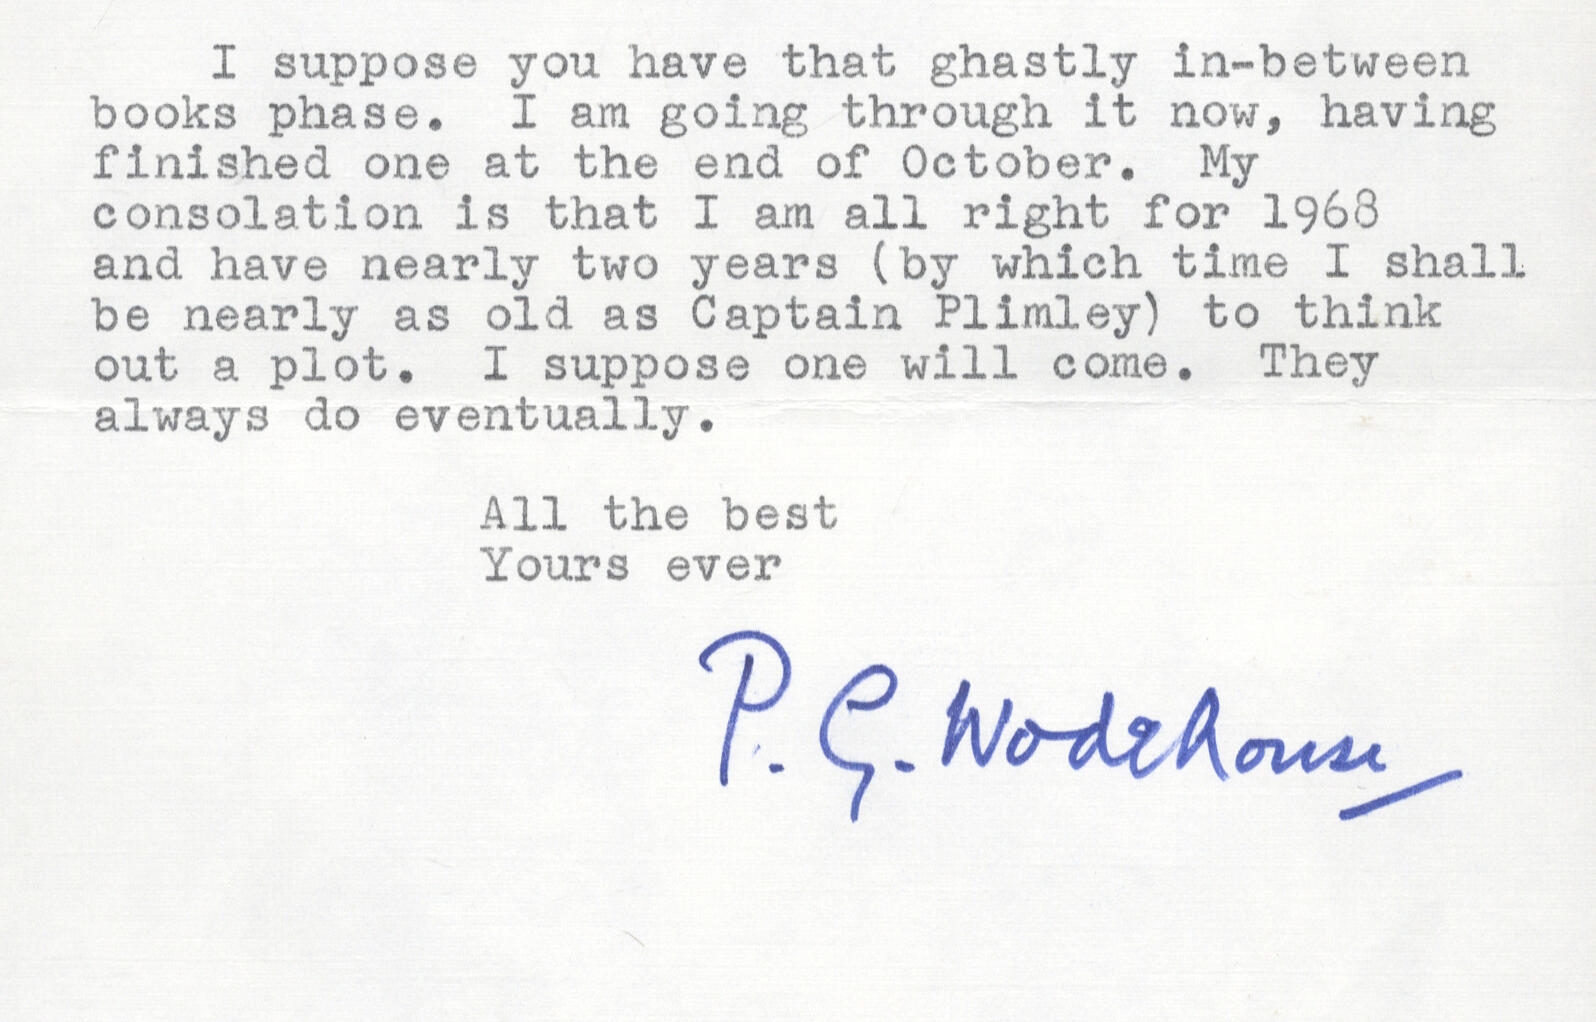 I suppose you have that ghastly in-between
books phase. I am going through it now, having
finished one at the end of October. My
consolation is that I am all right for 1968
and have nearly two years (by which time I shall
be nearly as old as Captain Plimley) to think
out a plot. I suppose one will come. They
always do eventually.
All the best
Yours ever
P. G. Wodehouse